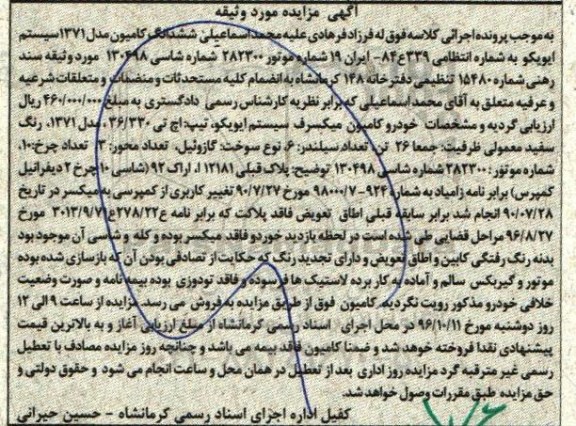 آگهی مزایده مورد وثیقه
به موجب پرونده اجرائی کلاسه فوق له فرزاد فرهادی علیه محمد اسماعیلی ششدانگ کامیون مدل ۱۳۷۱ سیستم
ایویکو به شماره انتظامی ۳۳۹ع۸۴- ایران ۱۹ شماره موتور ۲۸۲۳۰۰ شماره شاسی ۱۳۰۴۹۸ مورد وثیقه سند
رهنی شماره ۱۵۴۸۰ تنظیمی دفترخانه ۱۴۸ کرمانشاه به انضمام کلیه مستحدثات و منضمات و متعلقات شرعیه
و عرفیه متعلق به آقای محمد اسماعیلی که برابر نظریه کارشناس رسمی دادگستری به مبلغ ۴۶۰/۰۰۰/۰۰۰ ریال
ارزیابی گردیه و مشخصات خودرو کامیون میکسرف سیستم ایویکو، تیپ: اچ تی ۳۶/۳۳۰، مدل ۱۳۷۱، رنگ
سفید معمولی ظرفیت: جمعا ۲۶ تن، تعداد سیلندر: ۶، نوع سوخت: گازوئیل، تعداد محور: ۳ تعداد چرخ: ۱۰،
شماره موتور: ۲۸۲۳۰۰ شماره شاسی ۱۳۰۴۹۸ توضیح: پلاک قبلی ۱۲۱۸۱ ا، اراک ۹۲ (شاسی ۱۰ چرخ ۲ دیفرانیل
کمپرس) برابر نامه زامیاد به شماره ۹۲۴-۹۸۰۰۰۷ مورخ ۹۰/۷/۲۷ تغییر کاربری از کمپرسی به میکسر در تاریخ
۹۰/۰۷/۲۸ انجام شد برابر سابقه قبلی اطاق تعویض فاقد پلاکت که برابر نامه ع۲۷۸/۲۲ع ۳۰۱۳/۹/۷۱ مورخ
۹۶/۸/۲۷ مراحل قضایی طی شده است در لحظه بازدید خوردو فاقد میکسر بوده و کله و شاسی آن موجود بود
بدنه رنگ رفتگی کابین و اطاق تعویض و دارای تجدید رنگ که حکایت از تصادفی بودن آن که بازسازی شده بوده
موتور و گیربکس سالم و آماده به کار برده لاستیک ها فرسوده و فاقد تودوزی بوده بیمه نامه و صورت وضعیت
خلافی خودرو مذکور رویت نگردید. کامیون فوق از طریق مزایده به فروش می رسد. مزایده از ساعت ۹ الی ۱۲
روز دوشنبه مورخ ۹۶/۱۰/۱۱ در محل اجرای اسناد رسمی کرمانشاه از مبلغ ارزیابی آغاز و به بالاترین قیمت
پیشنهادی نقدا فروخته خواهد شد و ضمنا کامیون فاقد بیمه می باشد و چنانچه روز مزایده مصادف با تعطیل
رسمی غیر مترقبه گرد مزایده روز اداری بعد از تعطیل در همان محل و ساعت انجام می شود و حقوق دولتی و
حق مزایده طبق مقررات وصول خواهد شد.
کفیل اداره اجرای اسناد رسمی کرمانشاه - حسین حیرانی